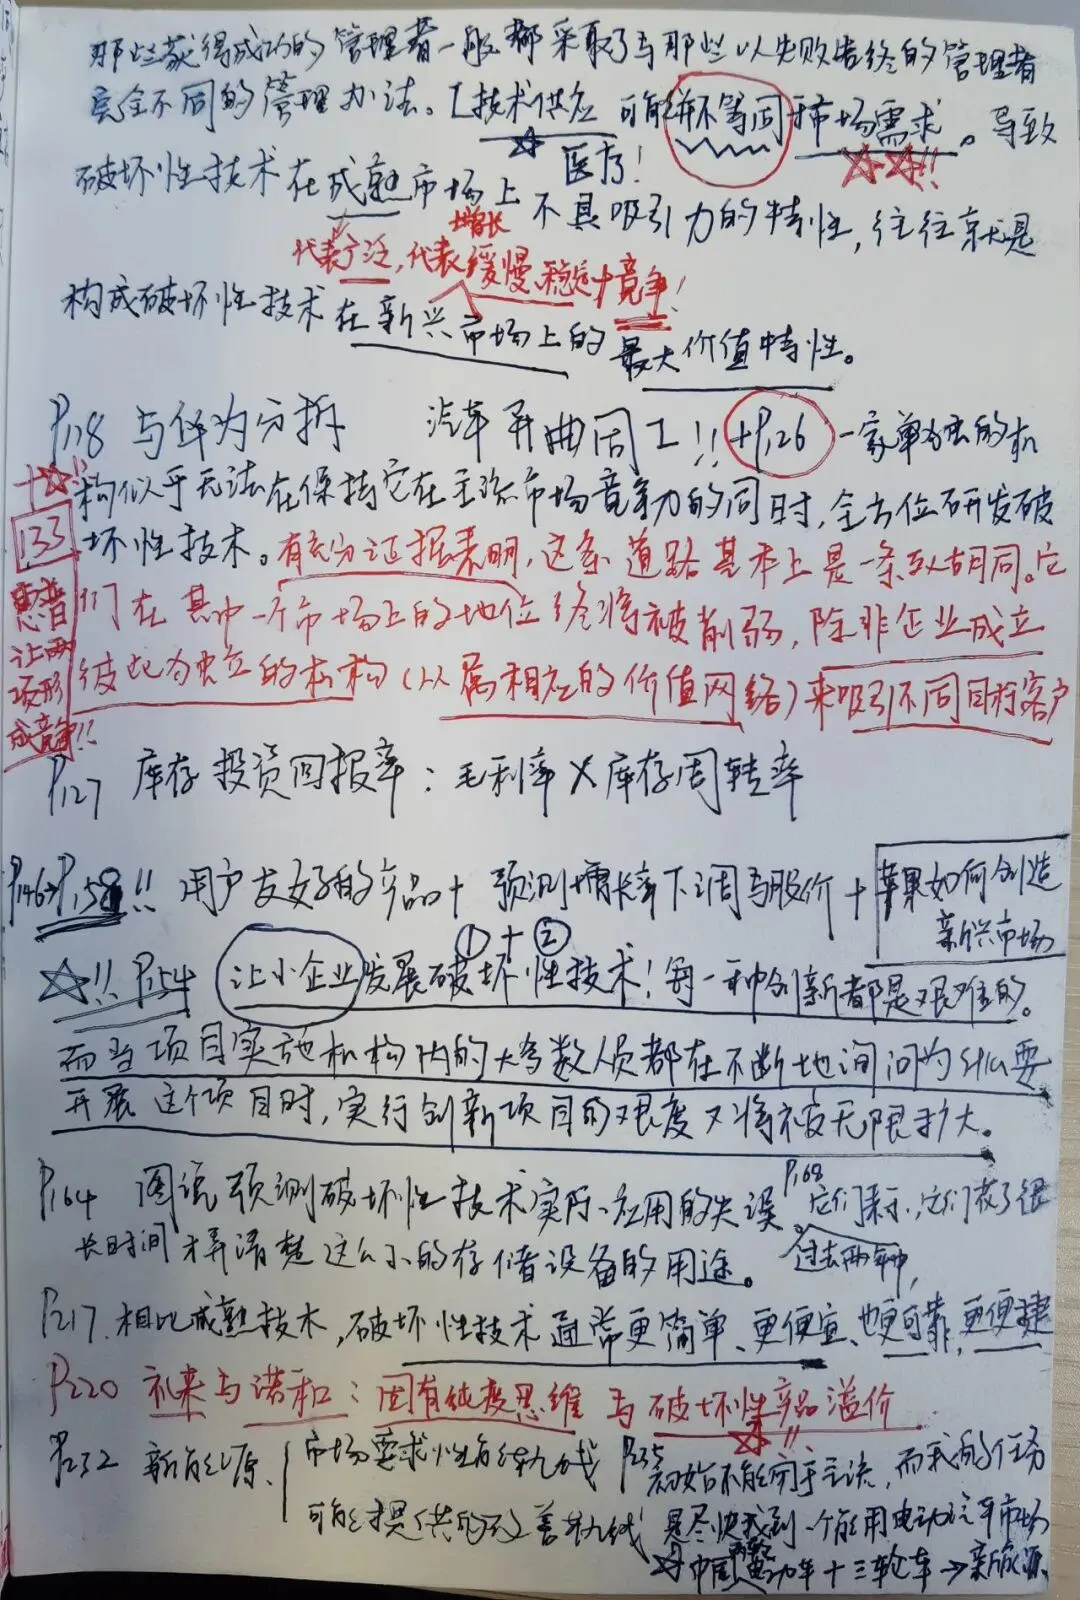 那些获得成功的管理者一般都采取了与那些以失败告终的管理者
完全不同的管理办法。【技术供应可能并不等同于市场需求。导致
医疗!
破坏性技术在成熟市场上不具吸引力的特性,往往就是
增长
代表广泛,代表缓慢、稳定+竞争!
构成破坏性技术在新兴市场上的最大价值特性。
P118 与华为分拆 汽车 !! +P126 一家单独的机
构似乎无法在保持它在主流市场竞争力的同时,全方位研发破
坏性技术。有充分证据表明,这条道路基本上是一条死胡同。它
们在其中一个市场上的地位终将被削弱,除非企业成立
彼此独立的机构(从属相应的价值网络)来吸引不同目标客户
+☆!!
133
惠普
让两
项形
成竞争!!
P127 库存投资回报率:毛利率×库存周转率
P146→P158!! 用户友好的产品+预测增长率下调与股价+苹果如何创造
新兴市场
①+②
☆!! P154 让小企业发展破坏性技术!每一种创新都是艰难的。
而当项目实施机构内的大多数人员都在不断地询问为什么要
开展这个项目时,实行创新项目的难度又将被无限扩大。
P164 图说预测破坏性技术实际应用的失误 P168 它们表示,它们花了很
长时间才弄清楚这么小的存储设备的用途。过去两年中,
P217. 相比成熟技术,破坏性技术通常更简单、更便宜、也更可靠,更便捷
P220 礼来与诺和:固有纯度思维与破坏性产品溢价
☆!!
P232 新能源 市场要求性能轨线 P235 初始不能穷于主流,而我的任务
可能提供的改善轨线 是尽快找到一个能用电动汽车市场
☆中国 电动车+三轮车→新能源